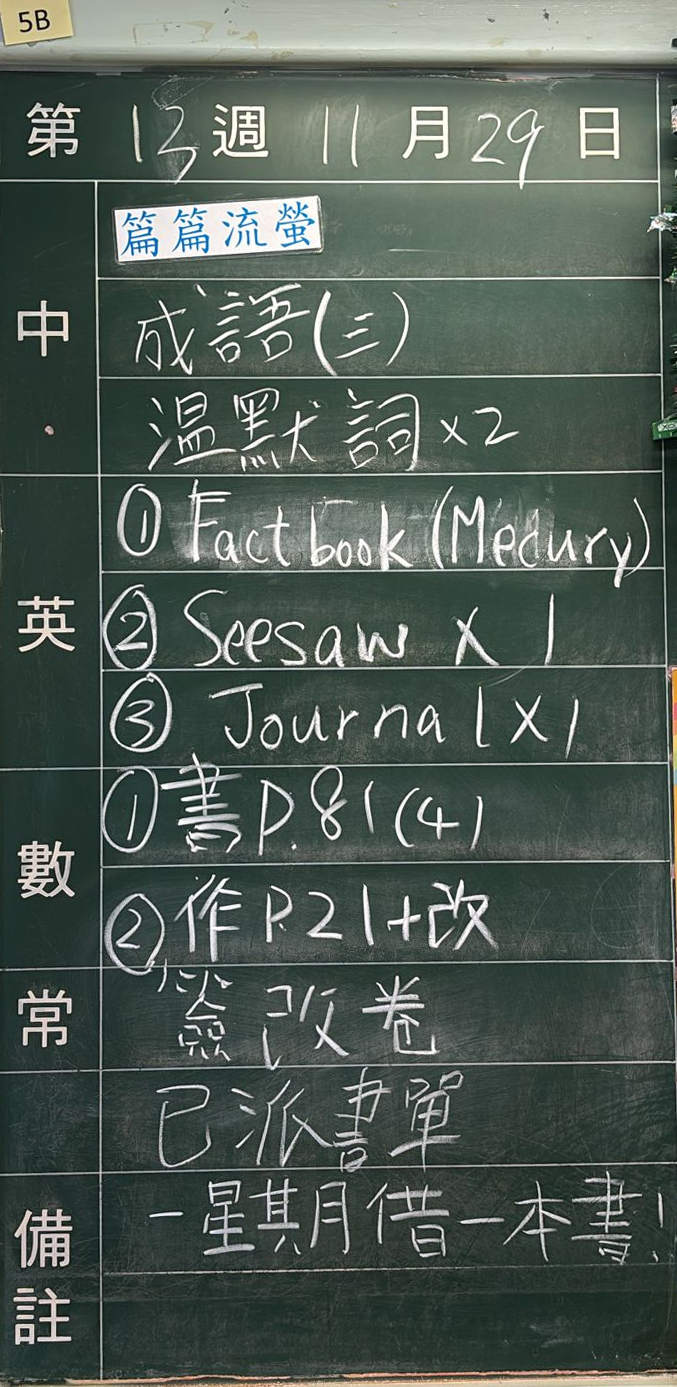 5B
第 13 週 11 月 29 日
中
篇篇流螢
成語(三)
温默詞 x2
英
① Fact book (Mecury)
② Seesaw x 1
③ Journal x 1
數
① 書 P.81 (4)
② 作 P.21+改
常
簽改卷
已派書單
備註
一星期借一本書!